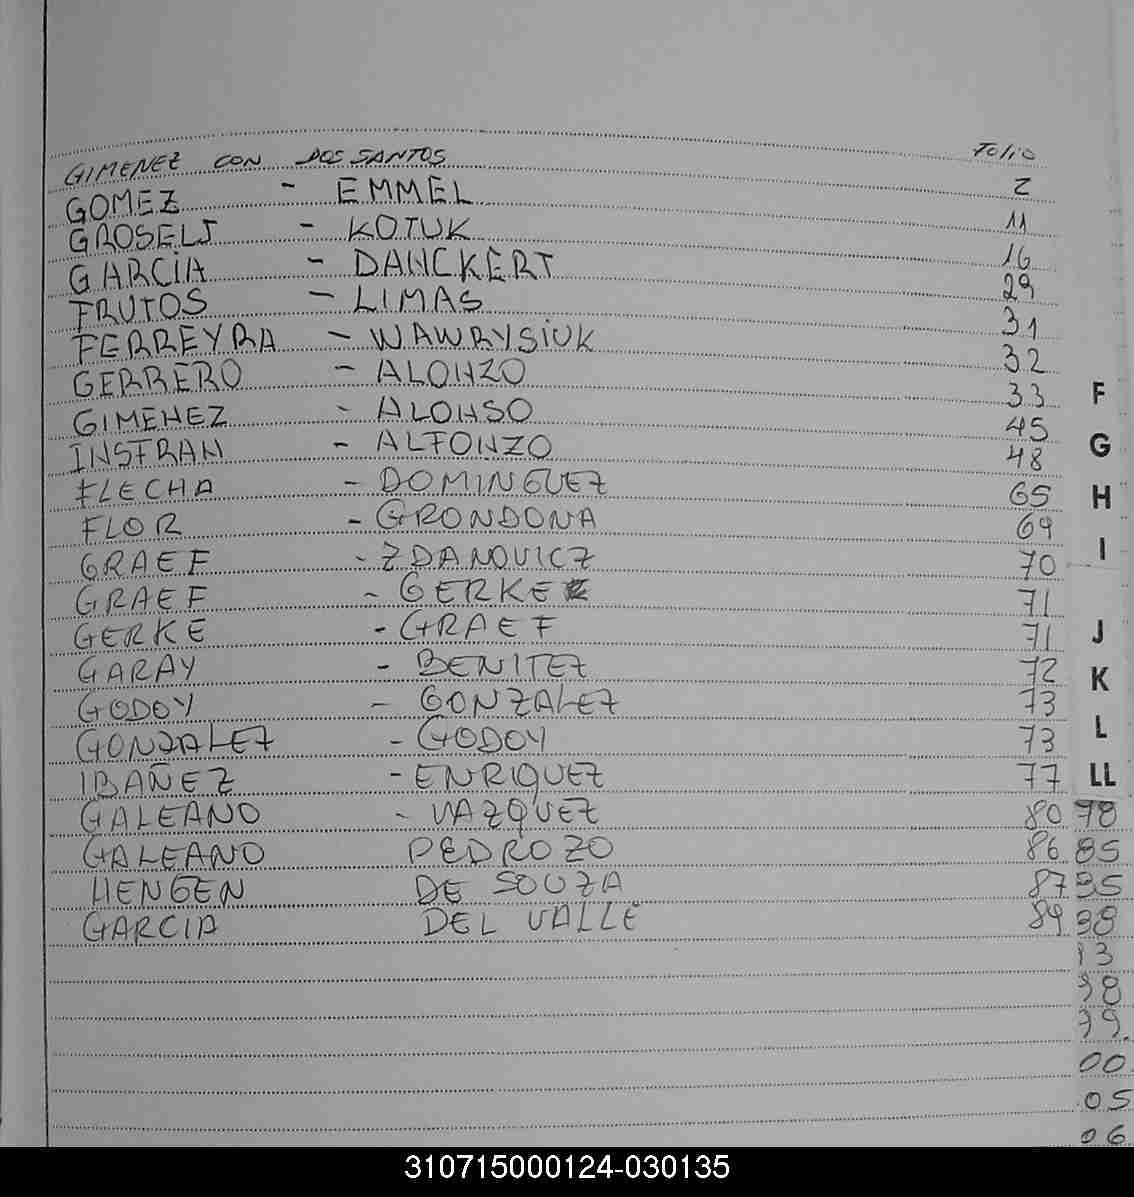 Folio
GIMENEZ CON DOS SANTOS 2
GOMEZ - EMMEL 11
GROSELJ - KOTUK 16
GARCIA - DANCKERT 29
FRUTOS - LIMAS 31
FERREYRA - WAWRYSIUK 32
GERRERO - ALONZO 33
GIMENEZ - ALONSO 45
INSFRAN - ALFONZO 48
FLECHA - DOMINGUEZ 65
FLOR - GRONDONA 69
GRAEF - ZDANOVICZ 70
GRAEF - GERKE 71
GERKE - GRAEF 71
GARAY - BENITEZ 72
GODOY - GONZALEZ 73
GONZALEZ - GODOY 73
IBAÑEZ - ENRIQUEZ 77
GALEANO - VAZQUEZ 80
GALEANO PEDROZO 86
HENGEN DE SOUZA 87
GARCIA DEL VALLE 89
F
G
H
I
J
K
L
LL
98
00
05
06
310715000124-030135